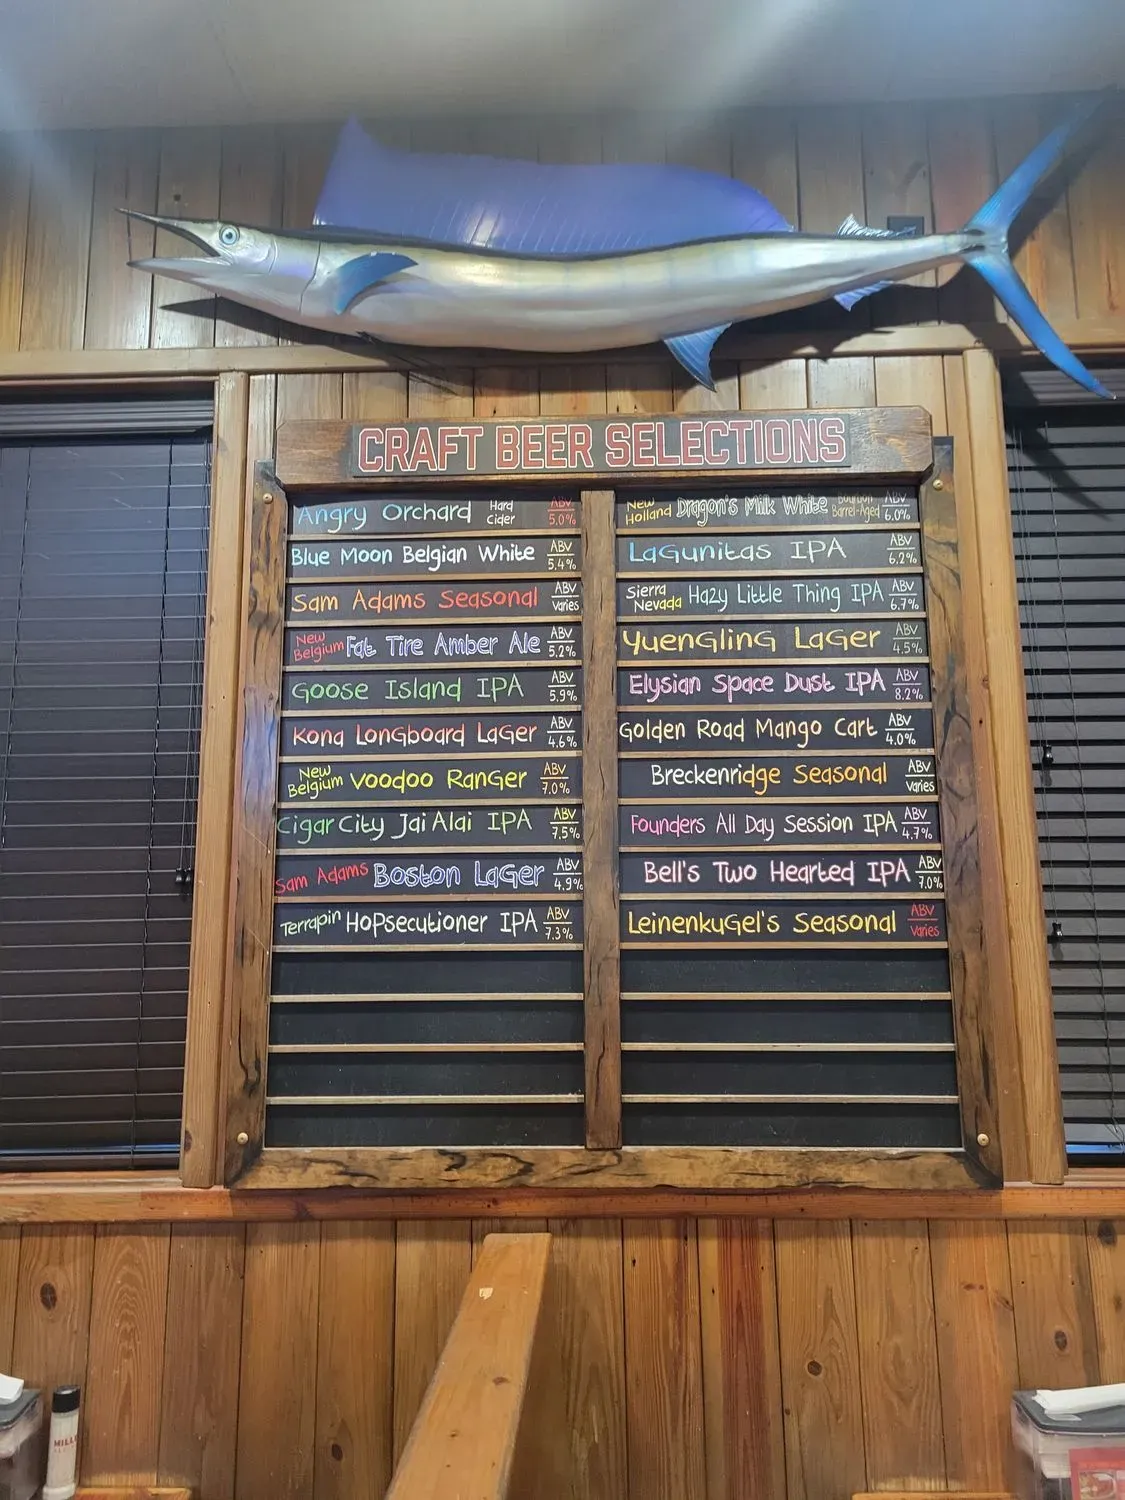 CRAFT BEER SELECTIONS
Angry Orchard Hard Cider ABV 5.0%
Blue Moon Belgian White ABV 5.4%
Sam Adams Seasonal ABV Varies
New Belgium Fat Tire Amber Ale ABV 5.2%
Goose Island IPA ABV 5.9%
Kona Longboard Lager ABV 4.6%
New Belgium Voodoo Ranger ABV 7.0%
Cigar City Jai Alai IPA ABV 7.5%
Sam Adams Boston Lager ABV 4.9%
Terrapin Hopsecutioner IPA ABV 7.3%
New Holland Dragon's Milk White Bourbon Barrel-Aged ABV 6.0%
Lagunitas IPA ABV 6.2%
Sierra Nevada Hazy Little Thing IPA ABV 6.7%
Yuengling Lager ABV 4.5%
Elysian Space Dust IPA ABV 8.2%
Golden Road Mango Cart ABV 4.0%
Breckenridge Seasonal ABV Varies
Founders All Day Session IPA ABV 4.7%
Bell's Two Hearted IPA ABV 7.0%
Leinenkugel's Seasonal ABV Varies